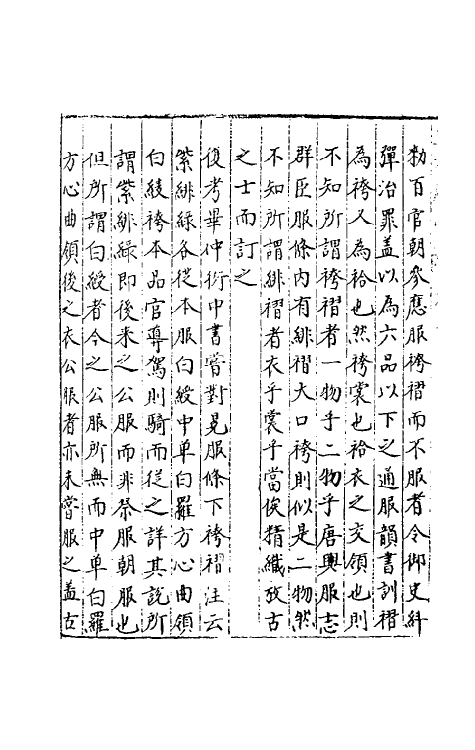 勑百官朝參應服袴褶而不服者令御史糾
彈治罪盖以為六品以下之通服韻書訓褶
為袴又為袷也然袴裳也袷衣之交領也則
不知所謂袴褶者一物乎二物乎唐輿服志
群臣服條內有緋褶大口袴則似是二物然
不知所謂緋褶者衣乎裳乎當俟精織攷古
之士而訂之
復考畢仲衍中書甞對見服條下袴褶注云
紫緋綠各從本服白綾中单白羅方心曲領
白綾袴本品官導駕則騎而從之詳其說所
謂紫緋綠即後来之公服而非祭服朝服也
但所謂白綾者今之公服所無而中单白羅
方心曲領後之衣公服者亦未甞服之盖古